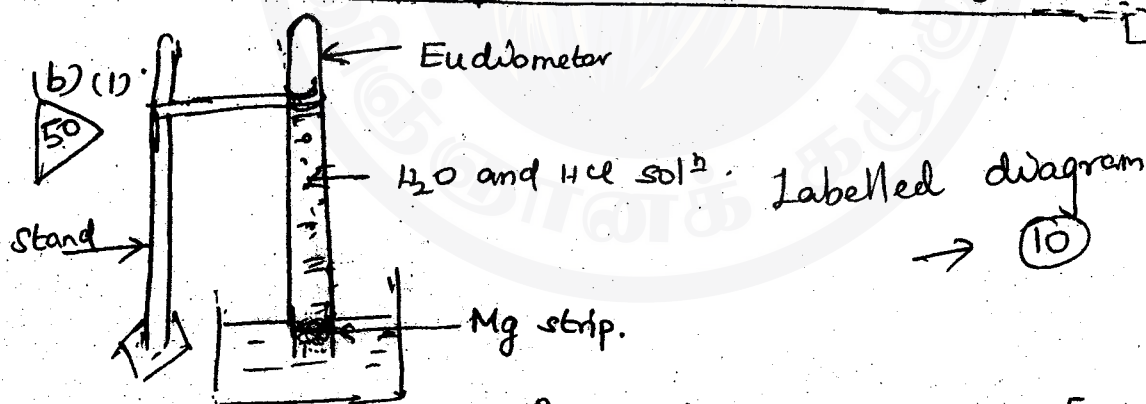 (b) (1)
50
Eudiometer
H₂O and HCl solⁿ.
Labelled diagram
→ 10
Stand
Mg strip.